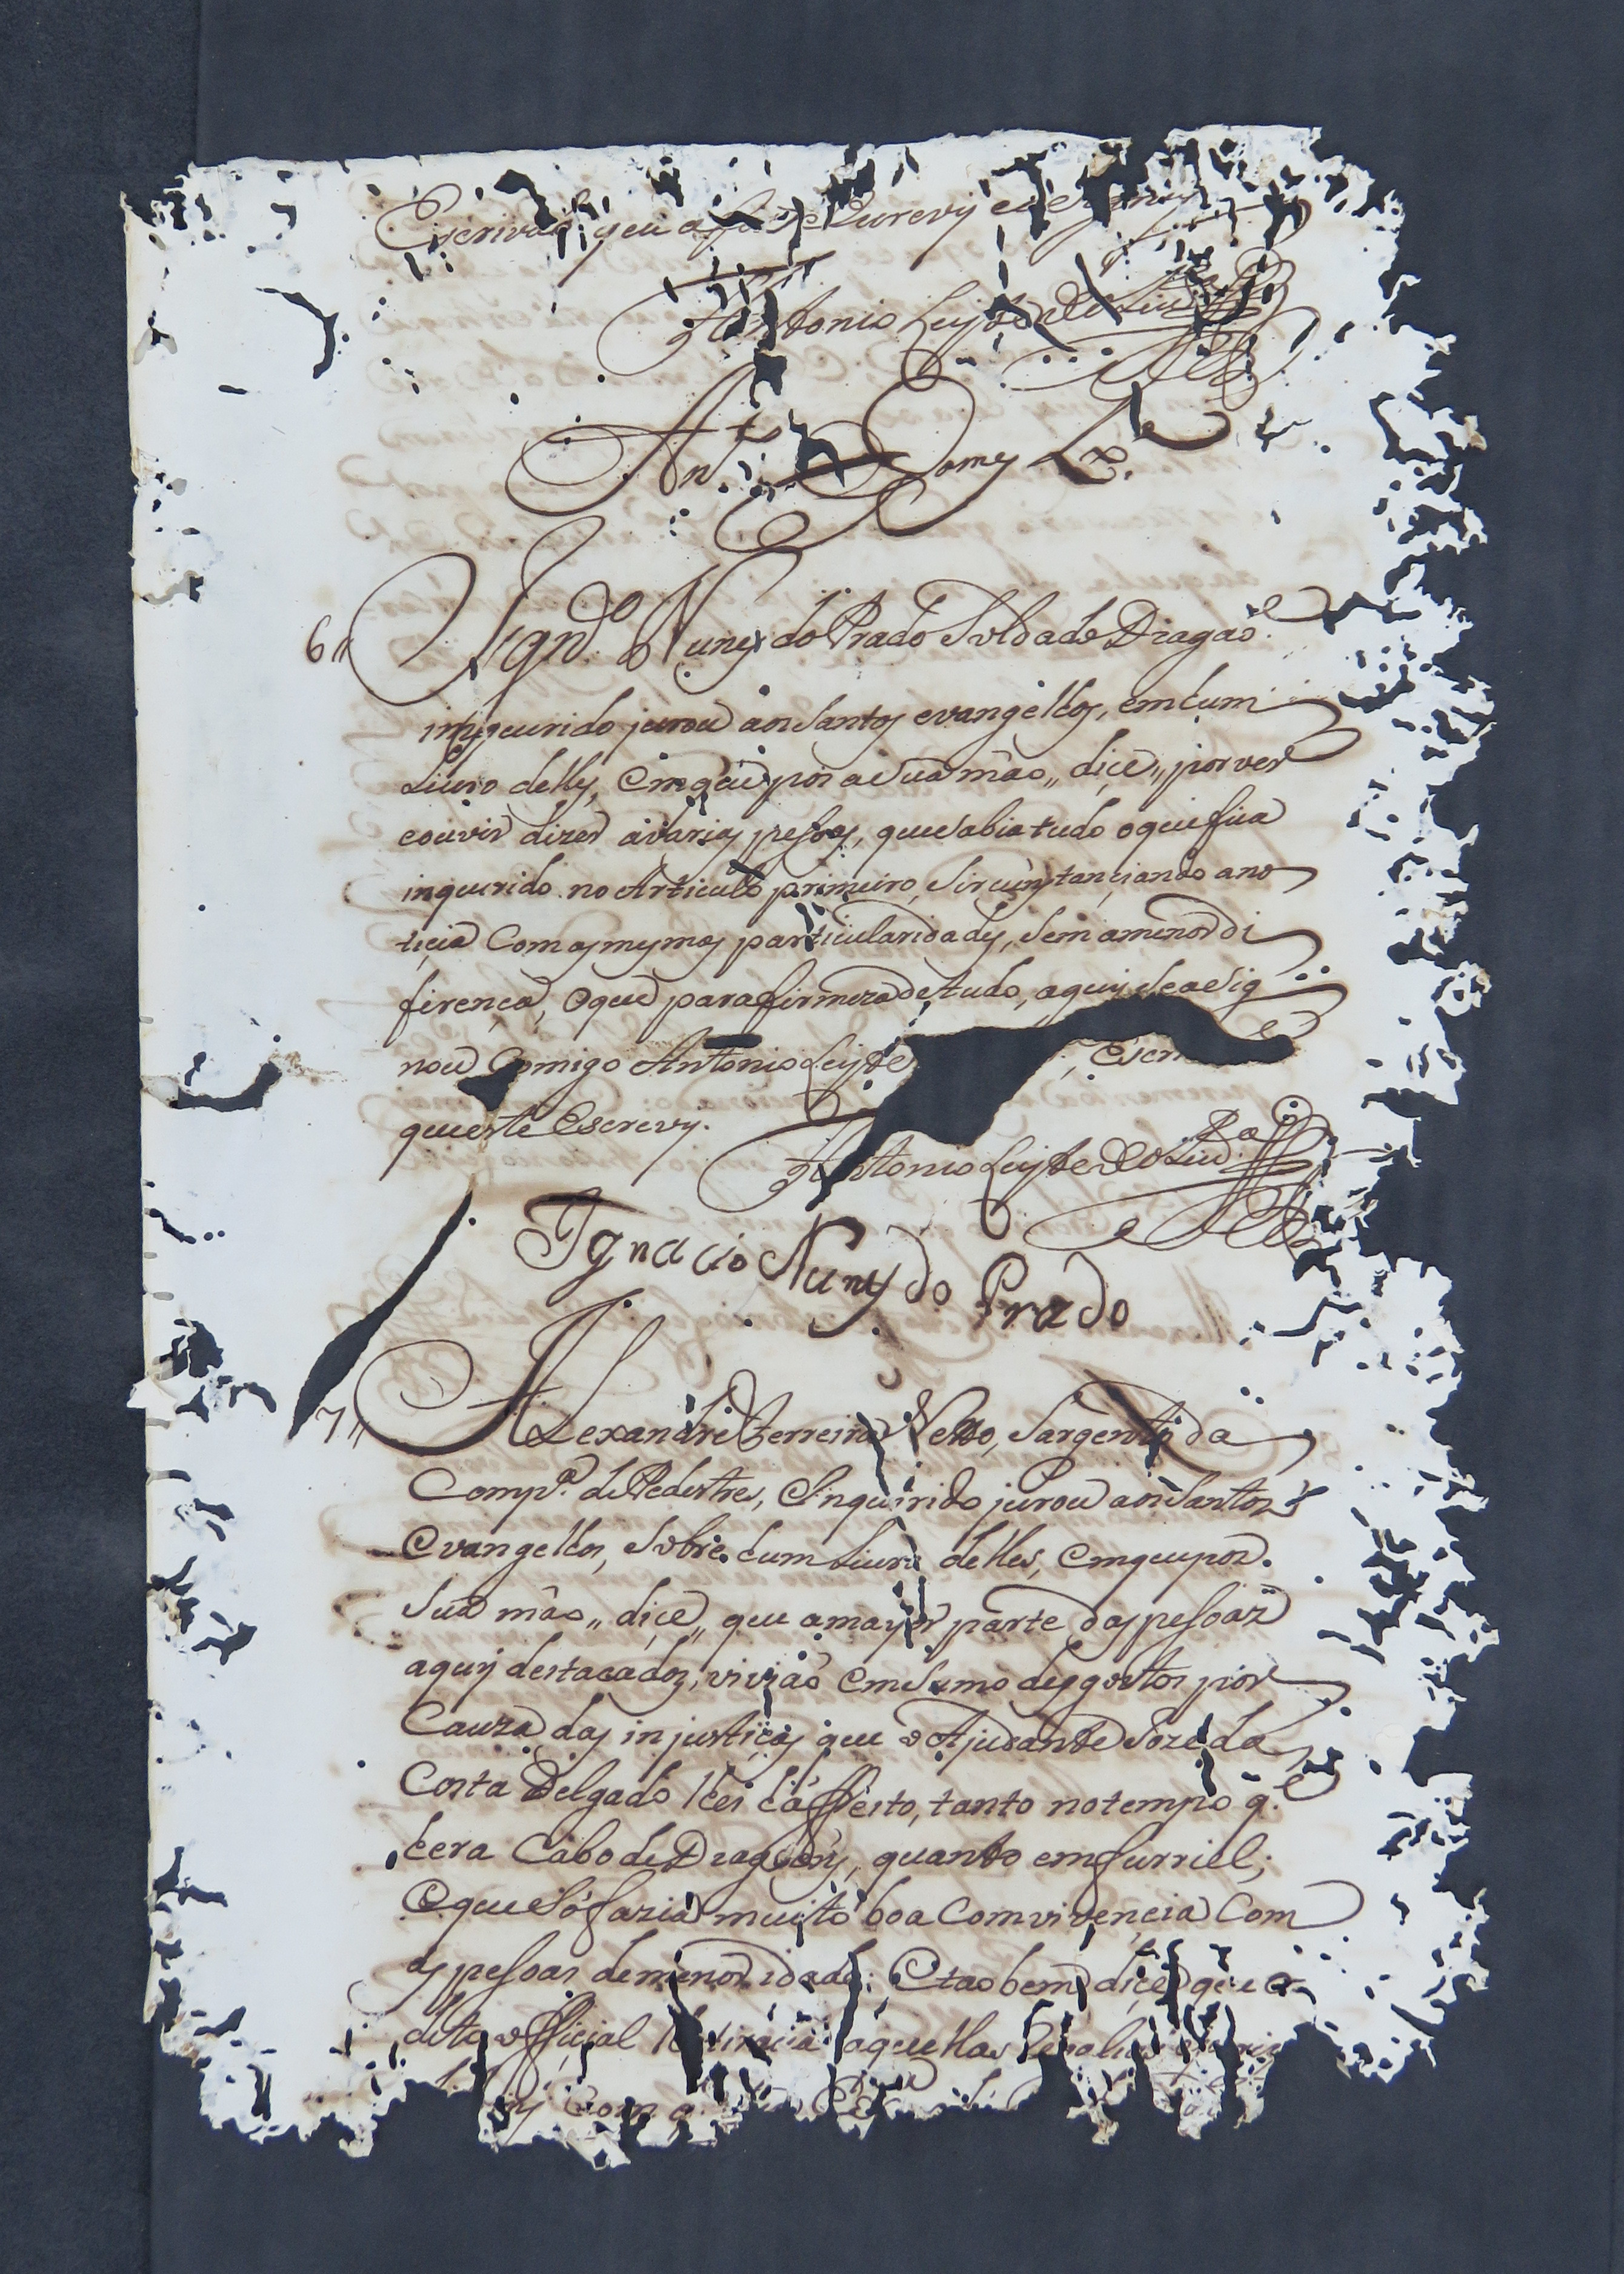 Escrivaõ que a fis e Escrevy e
Antonio Luis de
Ant.º Gomes
6,, Ign.ᶜᵒ Nunes do Prado Soldado Dragaõ
inquirido jurou aos Santos evangelhos, em hum
Livro delles, em que pos a Sua maõ,, diçe,, por ver
e ouvir dizer a varias pessoas, que Sabia tudo o que fica
inquirido no Articulo primeiro, Sircunstançiando a no
ticia Com as mesmas particularidades, Sem a menor di
ferença, o que para firmeza de tudo, aquy Se a Sig
nou Comigo Antonio Luis de
que este Escrevy.
Antonio Luis de Oliv.ʳᵃ
Ignacio Nunes do Prado
7,, Alexandre Ferreira Netto, Sargento da
Comp.ª de Pedestres, Inquirido jurou aos Santos
Evangelhos, Sobre hum Livro delles, em que pos.
Sua maõ,, diçe,, que a mayor parte das pessoas
aquy destacados, viviaõ em Sumo desgostos por
Cauza das injustiças que o Ajudante Joze da
Costa Delgado lhes há ffeito, tanto no tempo q.ᵉ
hera Cabo de Dragões, quanto em furriel;
e que Só fazia muito boa Comvivencia Com
as pessoas de menor idade; e taobem diçe que o
dito official aquellas
Com